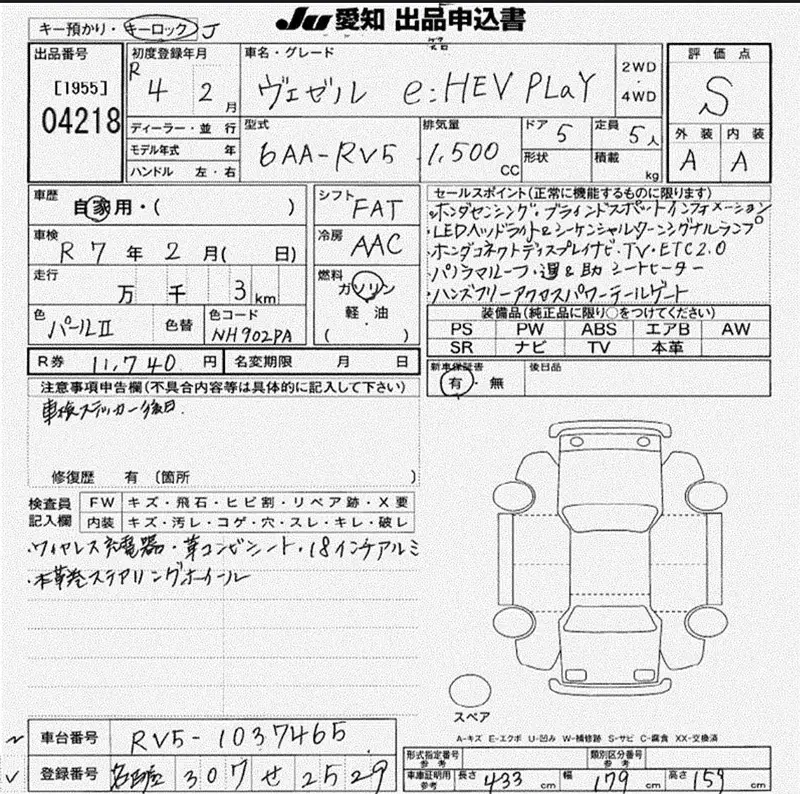 Ju 愛知 出品申込書
キー預かり・キーロック J
出品番号
[1955]
04218
初度登録年月
R 4 2月
ディーラー・並 行
モデル年式 年
ハンドル 左・右
車名・グレード
ヴェゼル e:HEV PLaY
2WD
・
4WD
型式
6AA-RV5
排気量
1,500 CC
ドア 5
定員 5人
形状
積載 kg
評価点
S
外装 内装
A A
車歴
自家用・( )
車検
R 7 年 2 月( 日)
走行
万 千 3 km
色
パールⅡ 色替
色コード
NH902PA
シフト
FAT
冷房
AAC
燃料
ガソリン
軽・油
( )
セールスポイント(正常に機能するものに限ります)
・ホンダセンシング・ブラインドスポットインフォメーション
・LEDヘッドライト&シーケンシャルターニングナルランプ
・ホンダコネクトディスプレイナビ・TV・ETC2.0
・パノラマルーフ・運&助シートヒーター
・ハンズフリーアクセスパワーテールゲート
装備品(純正品に限り○をつけてください)
PS PW ABS エアB AW
SR ナビ TV 本革
R券 11,740 円 名変期限 月 日
新車保証書
有・無
後日品
注意事項申告欄(不具合内容等は具体的に記入して下さい)
車検ステッカー後日.
修復歴 有 〔箇所 〕
検査員
記入欄
FW キズ・飛石・ヒビ割・リペア跡・X要
内装 キズ・汚レ・コゲ・穴・スレ・キレ・破レ
・ワイヤレス充電器・革コンビシート・18インチアルミ
・本革巻ステアリングホイール
スペア
A-キズ E-エクボ U-凹み W-補修跡 S-サビ C-腐食 XX-交換済
車台番号 RV5-1037465
登録番号 名古屋 307 せ 2529
形式指定番号
参考
類別区分番号
参考
車庫証明用
参考
長さ 433 cm 幅 179 cm 高さ 159 cm